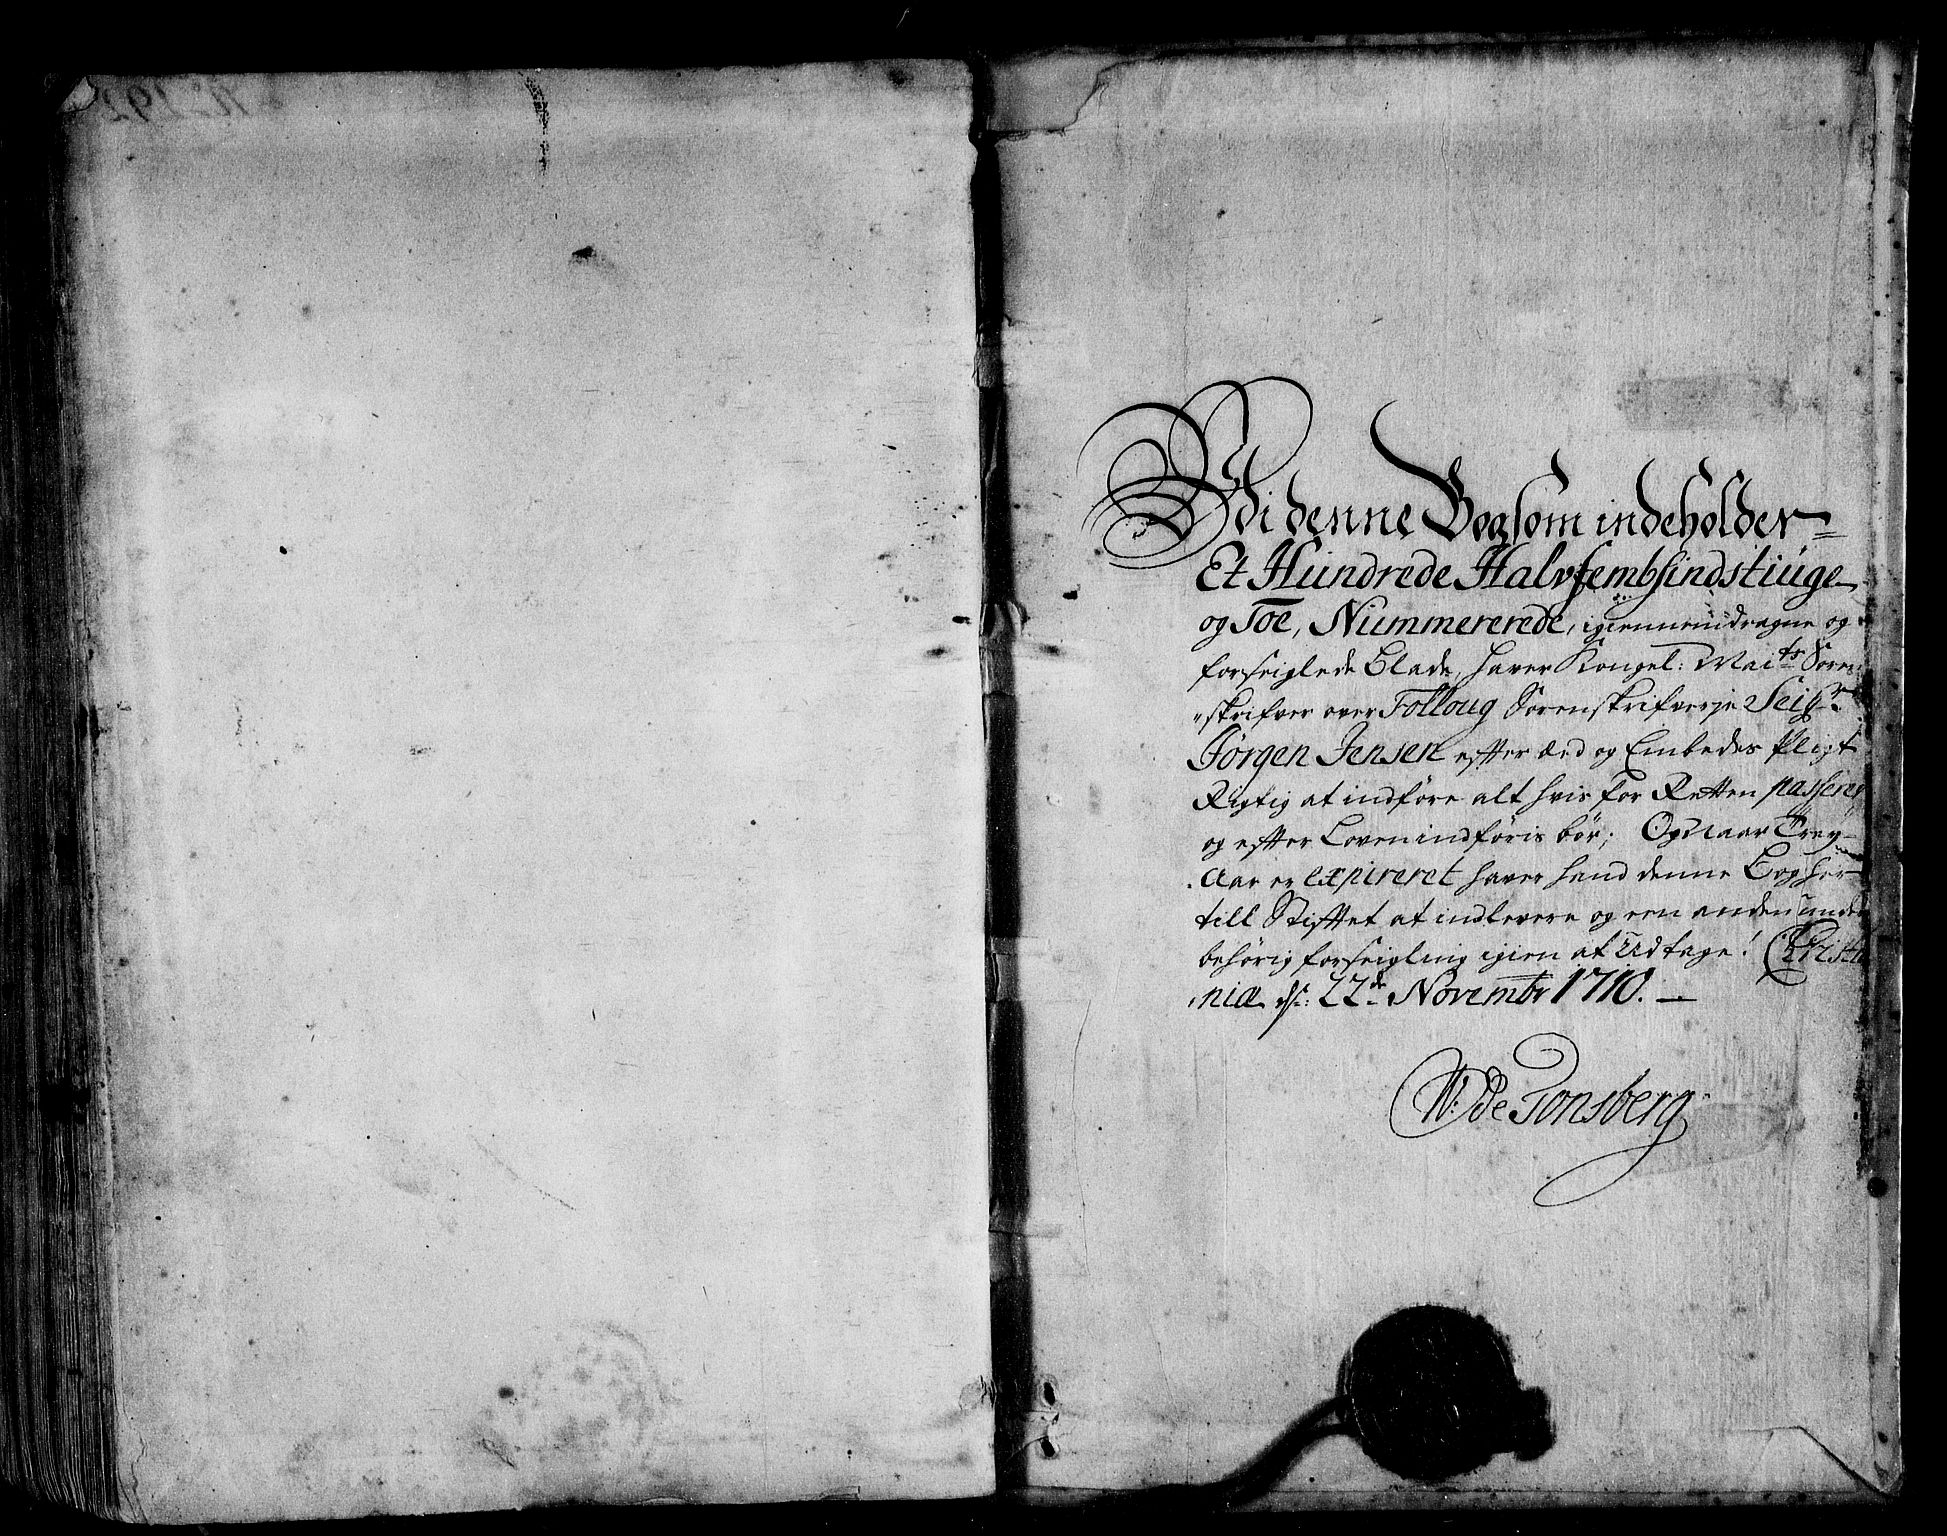 No 192
Udi denne Bog som indeholder
Et Hundrede Halvfembsindstiuge
og Toe, Nummererede, igiennemdragne og
forseiglede Blade, haver Kongel: Mai:ts Soren
skrifver over Folloug Sorenskrifverje Seigr
Jørgen Jensen efter æed og Embedes Pligt
Rigtig at indføre alt hvis for Retten passeres
og efter Loven indføris bør; Og naar Trey
Aar er Expireret haver hand denne Bog her
till Stiftet at indlevere og een anden under
behörig forseigling igien at Udtage! Christia
niæ d: 22de Novembr 1710.
W: de Tonsberg